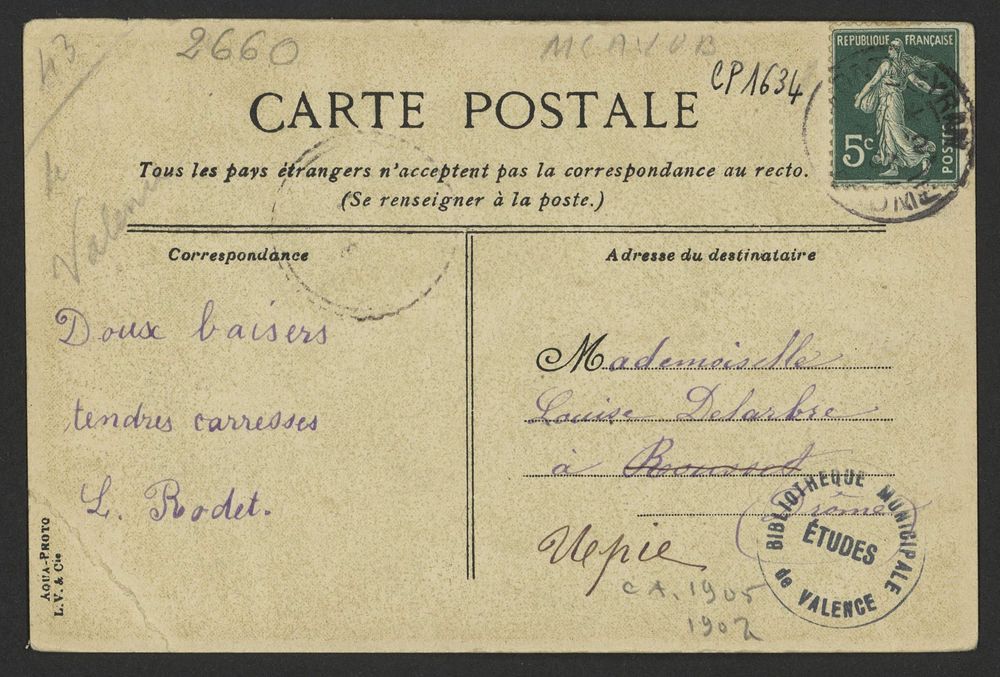 43
2660
CP1634
RÉPUBLIQUE FRANÇAISE
5c
POSTES
CARTE POSTALE
Tous les pays étrangers n'acceptent pas la correspondance au recto.
(Se renseigner à la poste.)
Valence
Correspondance
Adresse du destinataire
Doux baisers
tendres carresses
L. Rodet.
Mademoiselle
Louise Delarbre
à Rousset
Drôme
Upie
BIBLIOTHEQUE MUNICIPALE
ÉTUDES
de VALENCE
CA. 1905
1907
AQUA-PHOTO
L.V. & Cie